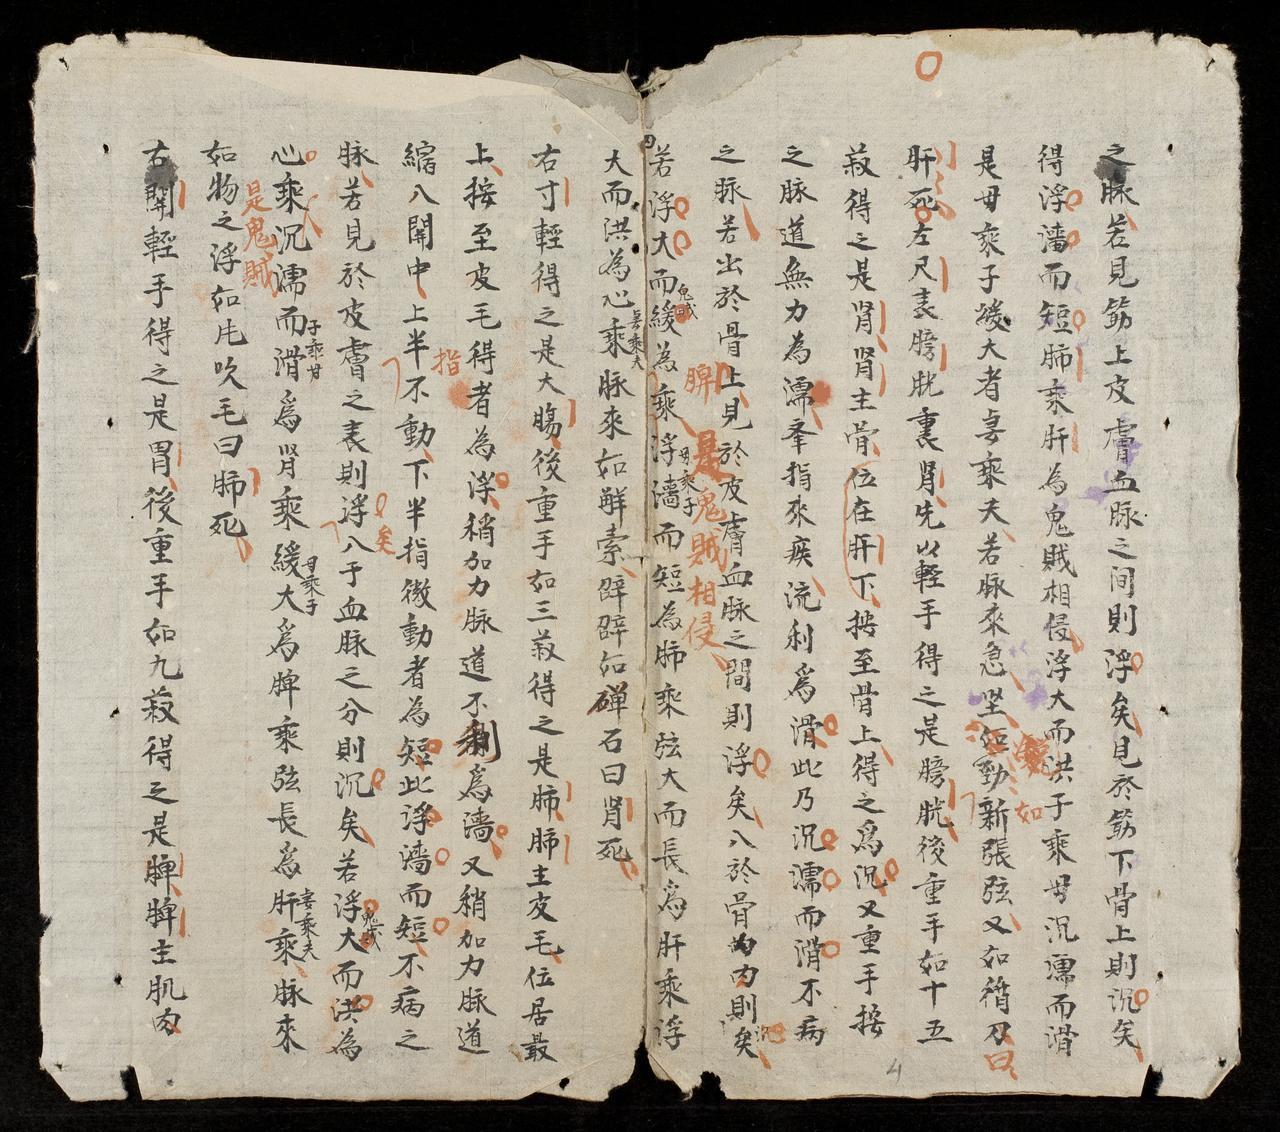 之脉若見筋上皮膚血脉之间則浮矣見於筋下骨上則沉矣
得浮濇而短肺乘肝为鬼賊相侵浮大而洪子乘母沉濡而滑
是母乘子緩大者妻乘夫若脉來急坚如勁新張弦又如循刀曰
肝死左尺表膀胱裏肾先以輕手得之是膀胱後重手如十五
菽得之是肾肾主骨位在肝下按至骨上得之為沉又重手按
之脉道無力為濡舉指來疾流利爲滑此乃沉濡而滑不病
之脉若出於骨上見於皮膚血脉之間則浮矣入於骨肉則沉矣
若浮大而緩為脾乘浮濇而短為肺乘弦大而長爲肝乘浮
鬼賊
母乘子
是鬼賊相侵
大而洪為心乘脉來如解索辟辟如磾石曰肾死
妻乘夫
右寸輕得之是大腸後重手如三菽得之是肺肺主皮毛位居最
上按至皮毛得者為浮稍加力脉道不利爲濇又稍加力脉道
縮入關中上半指不動下半指微動者為短此浮濇而短不病之
脉若見於皮膚之表則浮矣入于血脉之分則沉矣若浮大而洪為
鬼賊
心乘沉濡而滑爲肾乘緩大爲脾乘弦長爲肝乘脉來
是鬼賊
子乘母
母乘子
妻乘夫
如物之浮如毛吹毛曰肺死
右關輕手得之是胃後重手如九菽得之是脾脾主肌肉
4